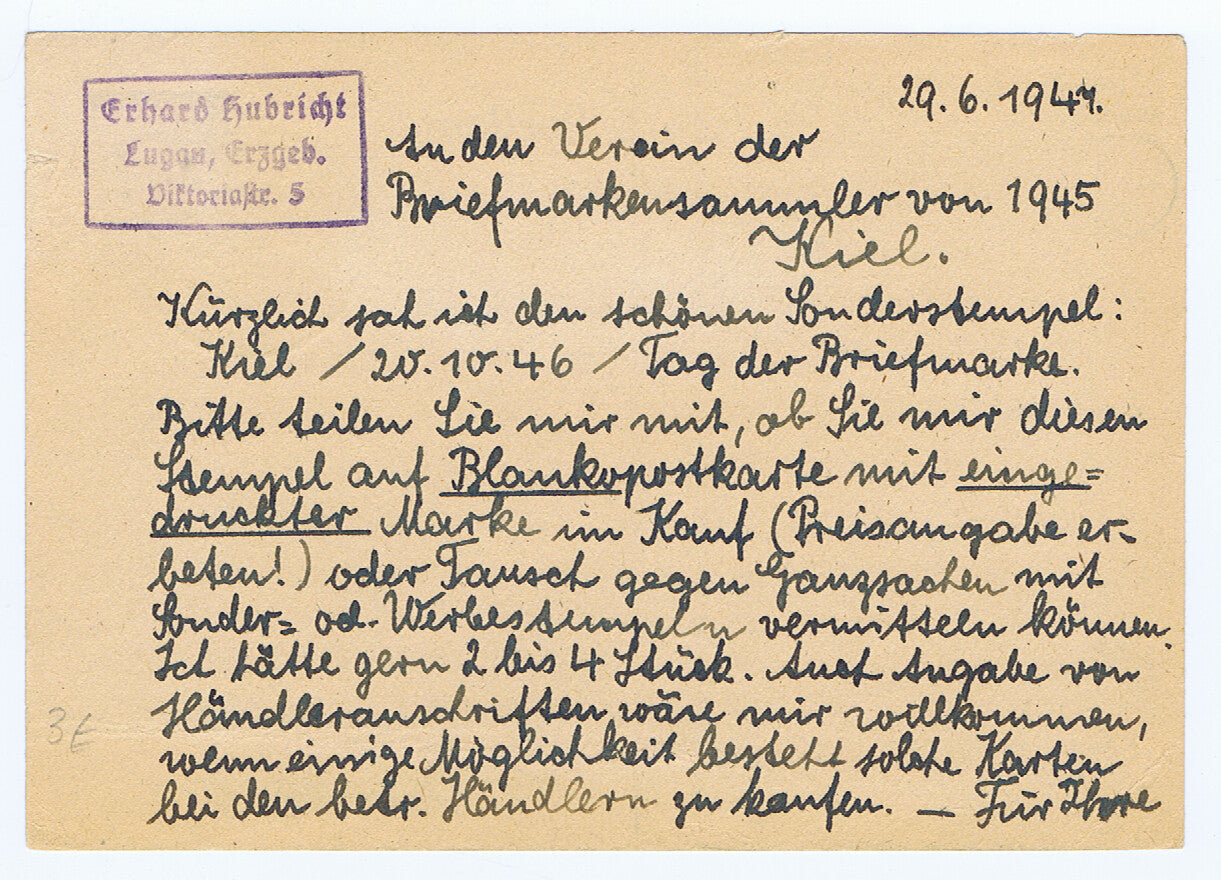 Erhard Hubricht
Lugau, Erzgeb.
Viktoriastr. 5
29.6.1947.
An den Verein der
Briefmarkensammler von 1945
Kiel.
Kürzlich sah ich den schönen Sonderstempel:
Kiel / 20.10.46 / Tag der Briefmarke.
Bitte teilen Sie mir mit, ob Sie mir diesen
Stempel auf Blankopostkarte mit einge=
druckter Marke im Kauf (Preisangabe er-
beten!) oder Tausch gegen Ganzsachen mit
Sonder= od. Werbestempeln vermitteln können.
Ich hätte gern 2 bis 4 Stück. Auch Angabe von
Händleranschriften wäre mir willkommen,
wenn einige Möglichkeit besteht solche Karten
bei den betr. Händlern zu kaufen. — Für Ihre
3€